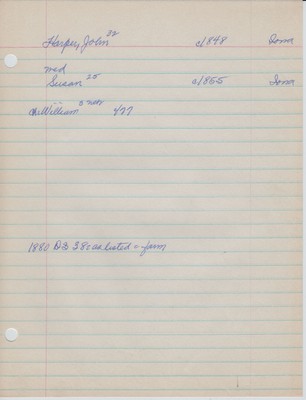 Harper, John 32 c1848 Iowa
med
Susan 25 c1855 Iowa
ch: William 4/77
1880 38 as listed - farm